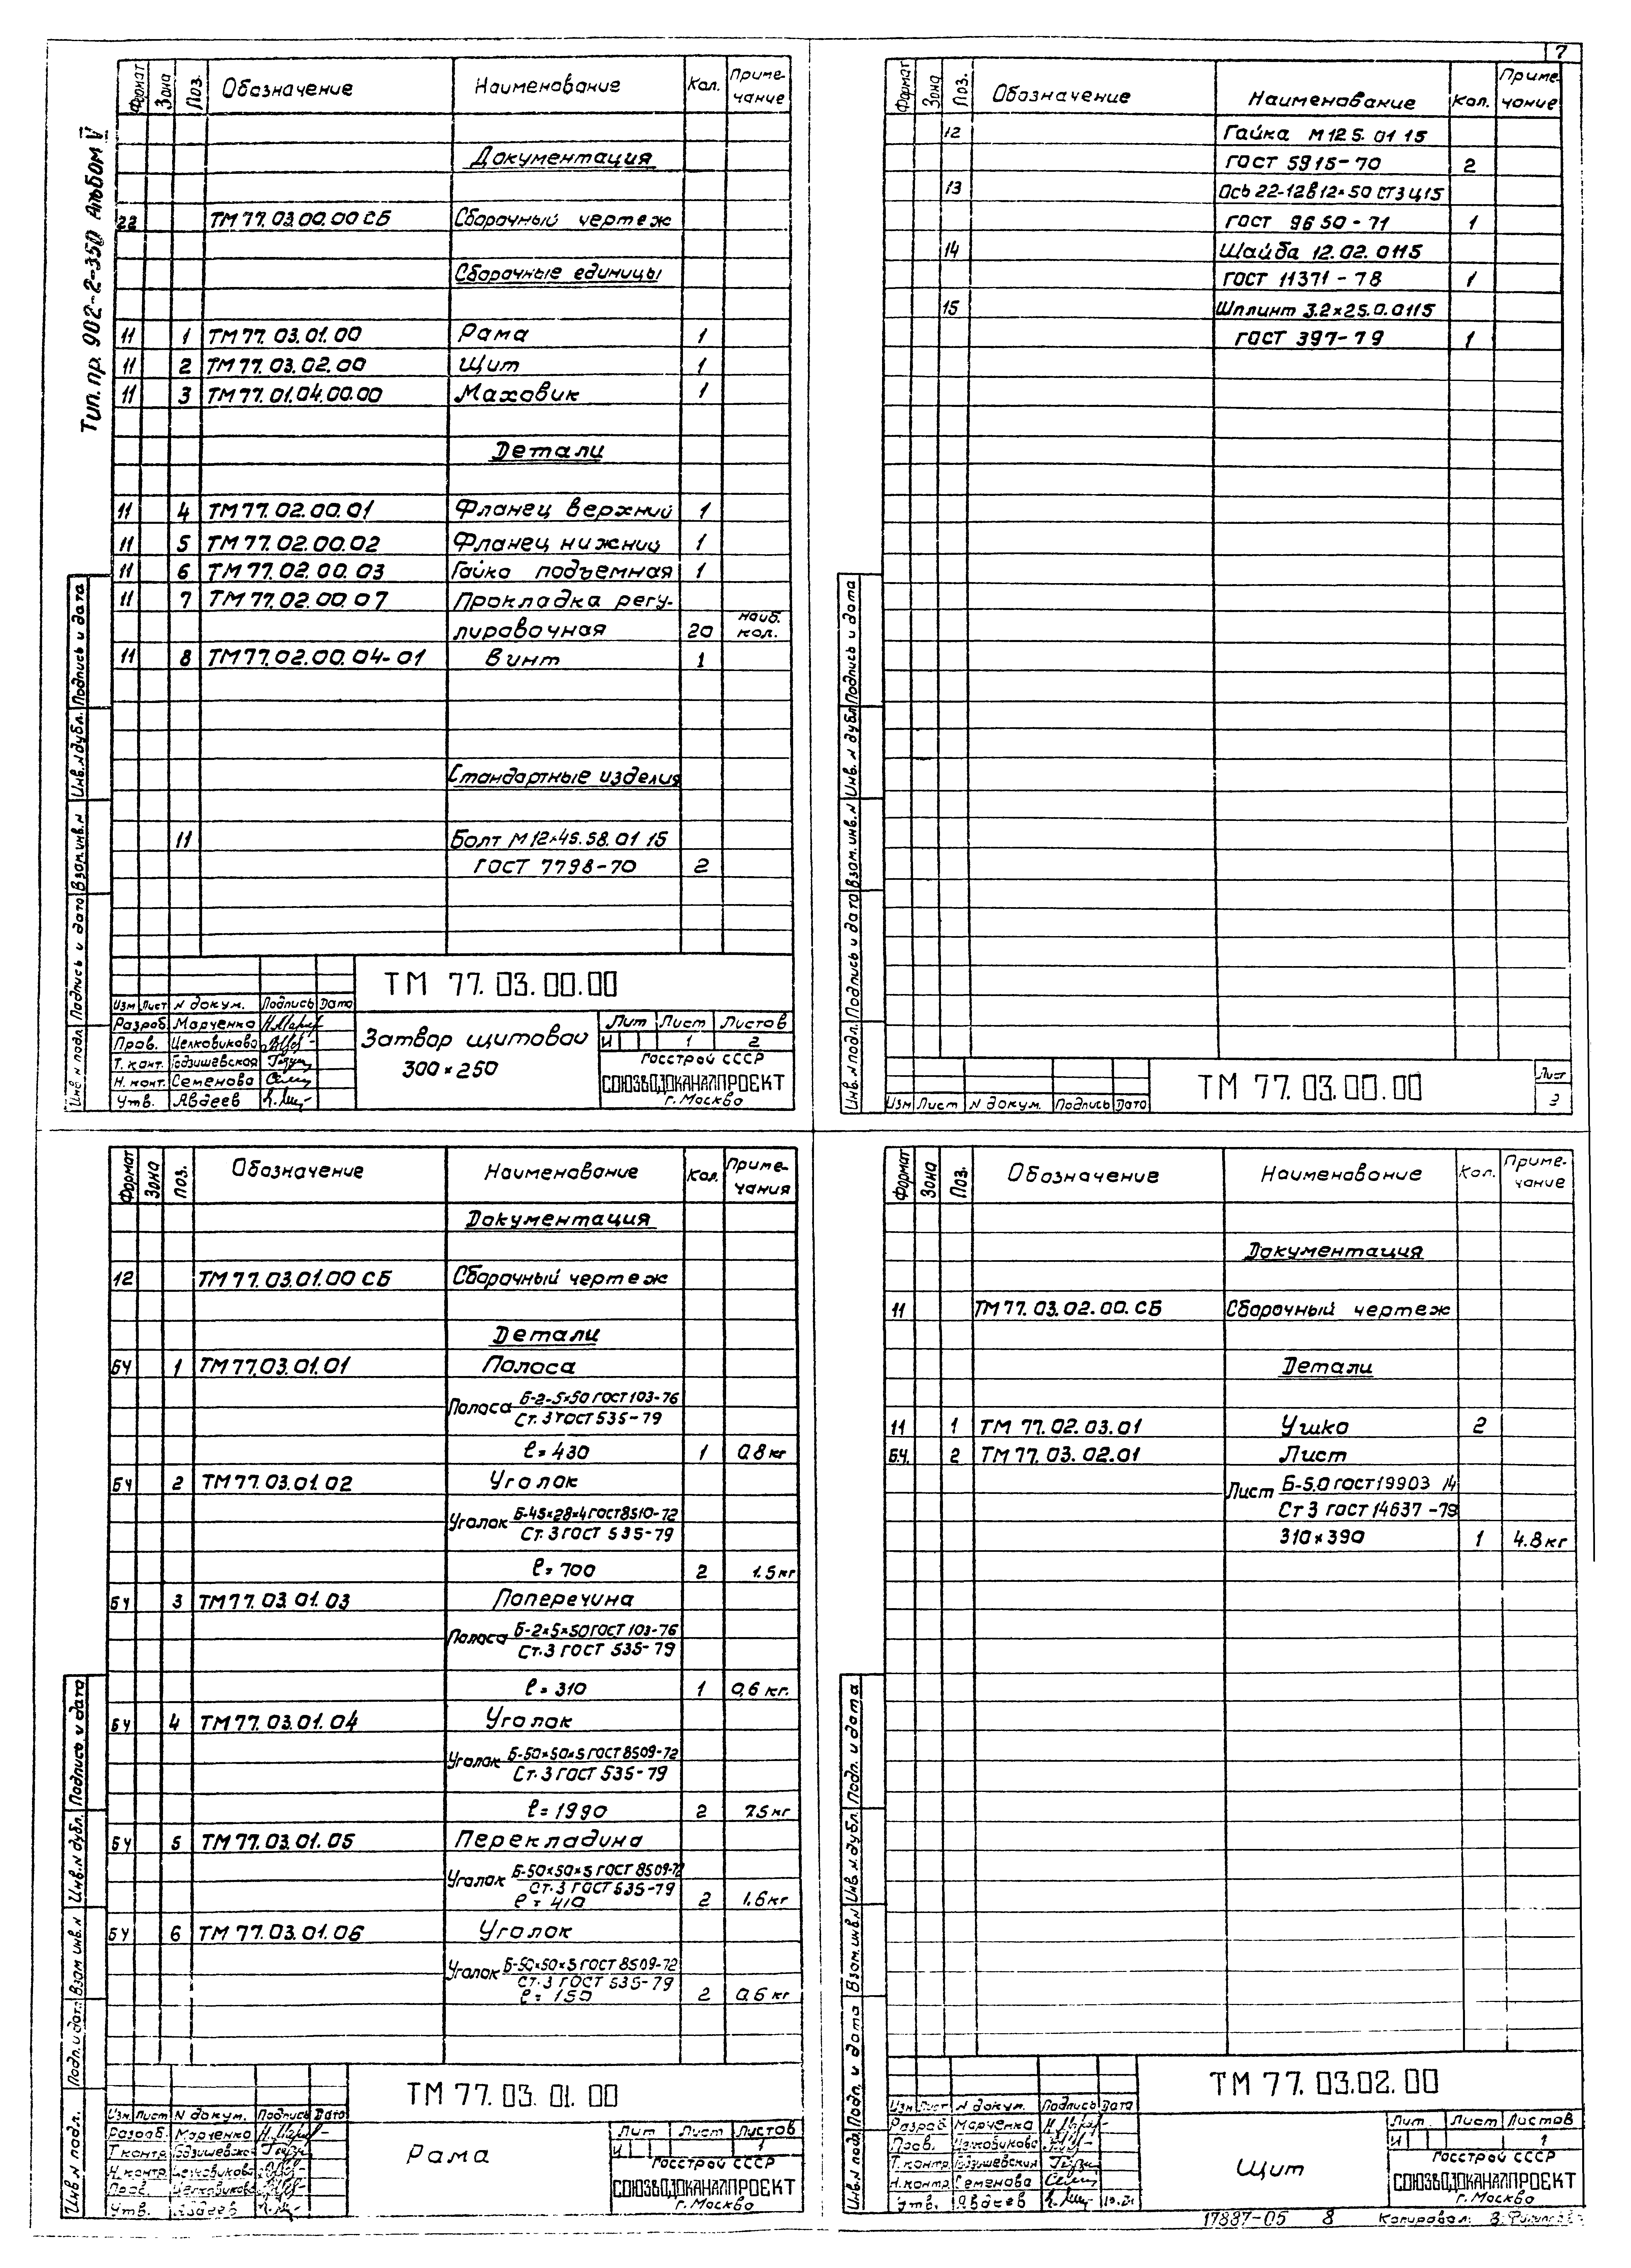 7
Тип. пр. 902-2-350 Альбом V
Формат Зона Поз. Обозначение Наименование Кол. Приме-
чание
Документация
22 ТМ 77.03.00.00 СБ Сборочный чертеж
Сборочные единицы
11 1 ТМ 77.03.01.00 Рама 1
11 2 ТМ 77.03.02.00 Щит 1
11 3 ТМ 77.01.04.00.00 Маховик 1
Детали
11 4 ТМ 77.02.00.01 Фланец верхний 1
11 5 ТМ 77.02.00.02 Фланец нижний 1
11 6 ТМ 77.02.00.03 Гайка подъемная 1
11 7 ТМ 77.02.00.07 Прокладка регу-
лировочная 20 наиб.
кол.
11 8 ТМ 77.02.00.04-01 Винт 1
Стандартные изделия
11 Болт М12×45.58.01 15
ГОСТ 7798-70 2
Инв. N подл. Подпись и дата Взам.инв.N Инв.N дубл. Подпись и дата
ТМ 77.03.00.00
Изм Лист N докум. Подпись Дата
Разраб. Марченко
Пров. Целковикова
Т. конт. Годзишевская
Н. конт. Семенова
Утв. Авдеев
Затвор щитовой
300×250
Лит Лист Листов
И 1 2
Госстрой СССР
СОЮЗВОДОКАНАЛПРОЕКТ
г. Москва
Формат Зона Поз. Обозначение Наименование Кол. Приме-
чание
12 Гайка М12 5. 01 15
ГОСТ 5915-70 2
13 Ось 22-12в12×50 СТ3 Ц15
ГОСТ 9650-71 1
14 Шайба 12.02.0115
ГОСТ 11371-78 1
15 Шплинт 3.2×25.0.0115
ГОСТ 397-79 1
Инв.N подл. Подпись и дата Взам.инв.N Инв. N дубл Подпись и дата
Изм Лист N докум. Подпись Дата
ТМ 77.03.00.00
Лист
Формат Зона Поз. Обозначение Наименование Кол. Приме-
чания
Документация
12 ТМ 77.03.01.00 СБ Сборочный чертеж
Детали
БЧ 1 ТМ 77.03.01.01 Полоса
Полоса Б-2-5×50 ГОСТ 103-76
Ст. 3 ГОСТ 535-79
ℓ=430 1 0.8 кг
БЧ 2 ТМ 77.03.01.02 Уголок
Уголок Б-45×28×4 ГОСТ 8510-72
Ст. 3 ГОСТ 535-79
ℓ=700 2 1.5 кг
БЧ 3 ТМ 77.03.01.03 Поперечина
Полоса Б-2×5×50 ГОСТ 103-76
Ст. 3 ГОСТ 535-79
ℓ=310 1 0,6 кг.
БЧ 4 ТМ 77.03.01.04 Уголок
Уголок Б-50×50×5 ГОСТ 8509-72
Ст. 3 ГОСТ 535-79
ℓ=1990 2 7.5 кг
БЧ 5 ТМ 77.03.01.05 Перекладина
Уголок Б-50×50×5 ГОСТ 8509-72
Ст. 3 ГОСТ 535-79
ℓ=410 2 1,6 кг
БЧ 6 ТМ 77.03.01.06 Уголок
Уголок Б-50×50×5 ГОСТ 8509-72
Ст. 3 ГОСТ 535-79
ℓ=150 2 0,6 кг
Инв.N подл. Подп. и дат. Взам инв.N Инв.N дубл. Подпись и дата
ТМ 77.03.01.00
Изм. Лист N докум. Подпись Дата
Разраб. Марченко
Т.контр. Годзишевская
Н. контр. Целковикова
Пров. Целковикова
Утв. Авдеев
Рама
Лит Лист Листов
И 1
Госстрой СССР
СОЮЗВОДОКАНАЛПРОЕКТ
г. Москва
Формат Зона Поз. Обозначение Наименование Кол. Приме-
чание
Документация
11 ТМ 77.03.02.00.СБ Сборочный чертеж
Детали
11 1 ТМ 77.02.03.01 Ушко 2
Б.Ч. 2 ТМ 77.03.02.01 Лист
Лист Б-5.0 ГОСТ 19903 74
Ст 3 ГОСТ 14637-79
310×390 1 4.8 кг
Инв.N подл. Подп. и дата Взам.инв.N Инв N.дубл. Подп. и дата
ТМ 77.03.02.00
Изм Лист N докум. Подпись Дата
Разраб Марченко
Пров. Целковикова
Т. контр. Годзишевская
Н.контр. Семенова
Утв. Авдеев
Щит
Лит. Лист Листов
И 1
Госстрой СССР
СОЮЗВОДОКАНАЛПРОЕКТ
г. Москва
17887-05 8 Копировал: